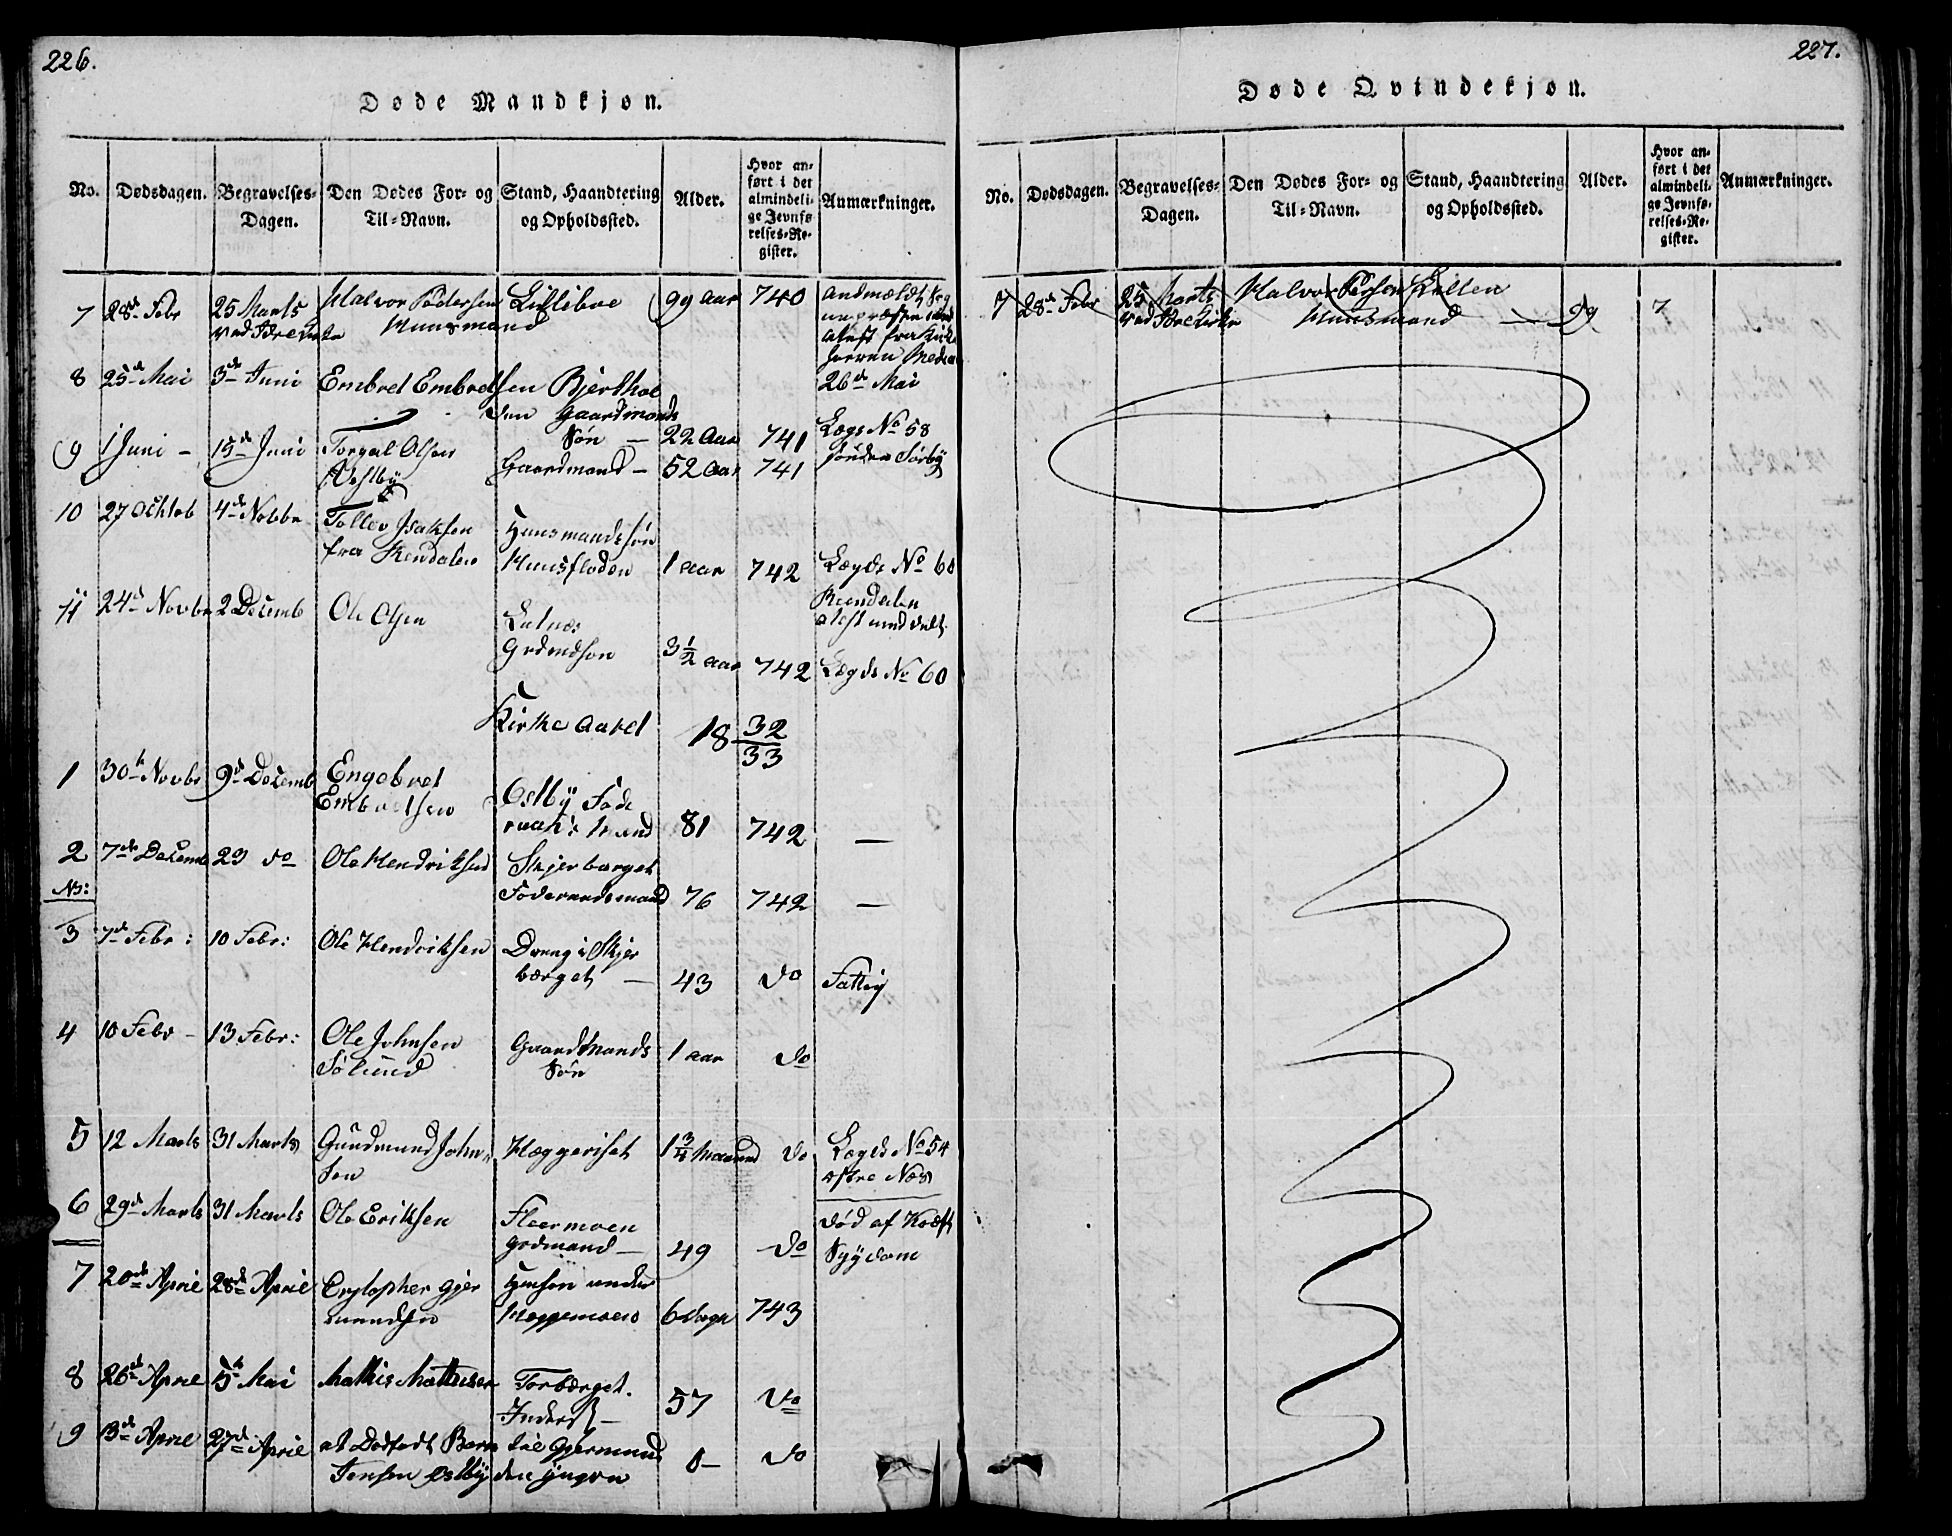 226.
Døde Mandkjøn.
No. Dødsdagen. Begravelses-Dagen. Den Dødes For- og Til-Navn. Stand, Haandtering og Opholdssted. Alder. Hvor anført i det almindelige Jevnførelses-Register. Anmærkninger.
7 28de Febr 25 Marts Halvor Pedersen 99 aar 740
Huusmand
8 25de Mai 3de Juni Embret Embretsen Bjerthol
26de Mai
den Gaardmands
Søn — 22 Aar 741 Lægs No 58
9 1 Juni – 15de Juni Torgal Olsen Gaardmand – 52 aar 741 sønden Sørby
10 27 Octob 4de Nobbr Tollev Isaksen Huusmandssøn
fra Rendalen Huusfloden 1 aar 742 Lægds No 60
Rendalen
11 24de Novbr 2 Decemb Ole Olsen
3 1/2 aar 742 Lægds No 60
Kirke Aaret 18 32/33
1 30te Novbr 9de Decemb Engebret
Embretsen Østby Føde
mand 81 742 —
2 7de Decemb 23 do Ole Hendriksen Skjerbærget
Føderaadsmand 76 742 —
NB:
3 7de Febr: 10 Febr: Ole Hendriksen Dreng i Skjer
bærget — 43 do Fattig
4 10 Febr – 13 Febr: Ole Johnsen Gaardmands
Sølund Søn 1 aar do
5 12 Marts 31 Marts Gundmund John-
sen Hæggeriset 1 3/4 Maaned do Lægds No 54
østre Næs
6 29de Marts 31 Marts Ole Eriksen Flermoen
Grdmand — 49 do død af Kræft
Sygdom
7 20de April 28de April Crystopher Gjer
mundsen under
Heggemoen 6 Dage 743
8 26de April 5te Mai Mathis Mathisen Torbærget.
57 do
9 13de April 27de April et Dødfødt Barn til Gjermund
Jensen Østby den yngre 0 – do
227.
Døde Qvindekjøn.
No. Dødsdagen. Begravelses-Dagen. Den Dødes For- og Til-Navn. Stand, Haandtering og Opholdssted. Alder. Hvor anført i det almindelige Jevnførelses-Register. Anmærkninger.
7 28de Febr 25 Marts Halvor
Huusmand — 99 7